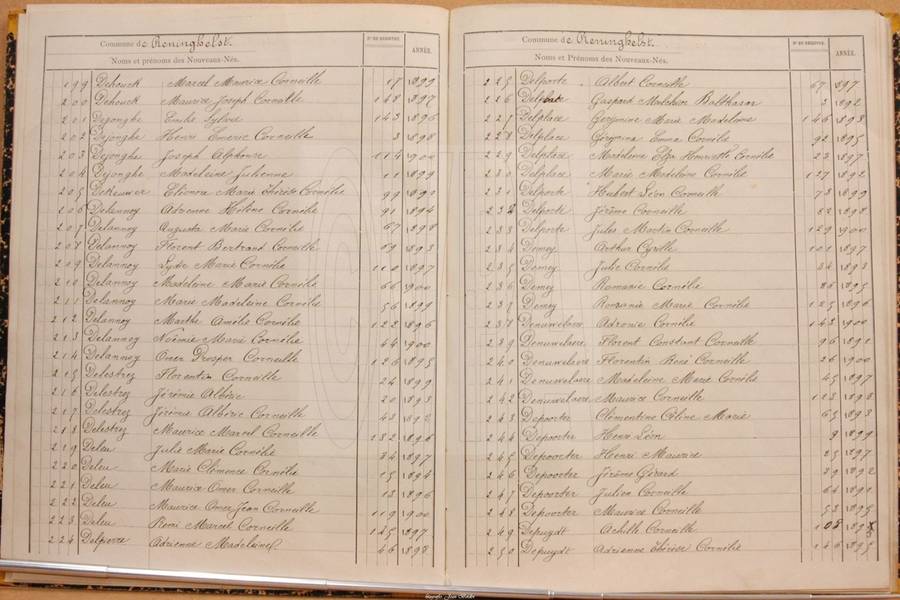 Commune de Reninghelst.
Noms et prénoms des Nouveaux-Nés.
Nº DE REGISTRE
ANNÉE.
199 Dehouck Marcel Maurice Corneille 17 1899
200 Dehouck Maurice Joseph Corneille 148 1897
201 Dejonghe Emile Sylvie 143 1896
202 Dejonghe Henri Emeric Corneille 3 1898
203 Dejonghe Joseph Alphonse 114 1900
204 Dejonghe Madeleine Julienne 11 1899
205 Dekeuwer Eléonra Marie Thérèse Cornélie 99 1890
206 Delannoy Adrienne Helène Cornélie 91 1894
207 Delannoy Augusta Marie Cornélie 67 1898
208 Delannoy Florent Bertrand Corneille 59 1893
209 Delannoy Lydie Marie Cornélie 110 1897
210 Delannoy Madeleine Marie Cornélie 66 1900
211 Delannoy Marie Madeleine Cornélie 56 1899
212 Delannoy Marthe Amélie Cornélie 122 1896
213 Delannoy Noémie Marie Cornélie 44 1900
214 Delannoy Omer Prosper Corneille 126 1895
215 Delestrez Florentin Corneille 24 1899
216 Delestrez Jérémie Alberic 20 1893
217 Delestrez Jérémie Albéric Corneille 43 1892
218 Delestrez Maurice Marcel Corneille 132 1896
219 Deleu Julie Marie Cornélie 34 1897
220 Deleu Marie Clémence Cornélie 15 1894
221 Deleu Maurice Omer Corneille 13 1896
222 Deleu Maurice Omer Jean Corneille 119 1900
223 Deleu Remi Marcel Corneille 125 1897
224 Delperre Adrienne Madeleine 46 1898
Commune de Reninghelst.
Noms et Prénoms des Nouveaux-Nés.
Nº DE REGISTRE
ANNÉE.
225 Delporte Albert Corneille 67 1897
226 Delplace Gaspard Melchior Balthasar 3 1892
227 Delplace Germaine Marie Madeleine 146 1898
228 Delplace Germaine Emma Cornélie 92 1895
229 Delplace Madeleine Elza Henriette Cornélie 23 1897
230 Delplace Marie Madeleine Cornélie 137 1892
231 Delporte Hubert Léon Corneille 73 1899
232 Delporte Jérôme Corneille 82 1898
233 Delporte Jules Martin Corneille 129 1900
234 Demey Arthur Cyrille 101 1897
235 Demey Julie Cornélie 34 1893
236 Demey Romanie Cornélie 86 1895
237 Demey Romanie Marie Cornélie 125 1896
238 Denuwelaere Adronie Cornélie 143 1900
239 Denuwelaere Florent Constant Corneille 96 1891
240 Denuwelaere Florentin René Corneille 26 1900
241 Denuwelaere Madeleine Marie Cornélie 45 1897
242 Denuwelaere Maurice Corneille 113 1898
243 Depoorter Clémentine Céline Marie 65 1893
244 Depoorter Henri Léon 9 1899
245 Depoorter Henri Maurice 25 1897
246 Depoorter Jérôme Gérard 39 1892
247 Depoorter Julien Corneille 64 1890
248 Depoorter Maurice Corneille 53 1895
249 Depuydt Achille Corneille 1893
250 Depuydt Adrienne Thérèse Cornélie 146 1895